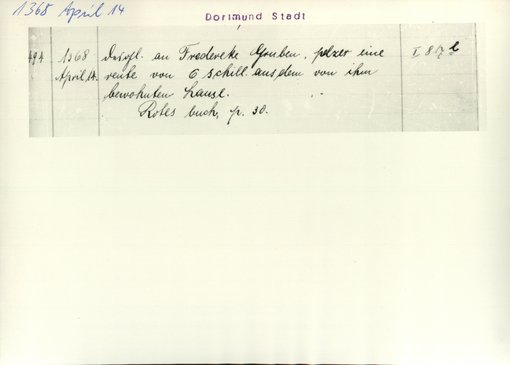 1368 April 14
Dortmund Stadt
494 1368 Desgl. an Fredereke Gruben, pelzer eine I 87 b
April 14. rente von 6 schill. aus dem von ihm
bewohnten hause.
Rotes buch, p. 30.